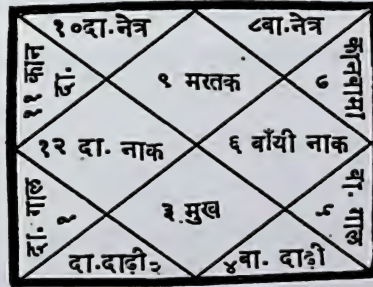 १०दा.नेत्र
८वा.नेत्र
११ कान
दा.
९ मरतक
कानबामा
७
१२ दा. नाक
६ बाँयी नाक
दा. गाल
१
३ मुख
वा. गाल
५
दा.दाढ़ी२
४वा. दाढ़ी